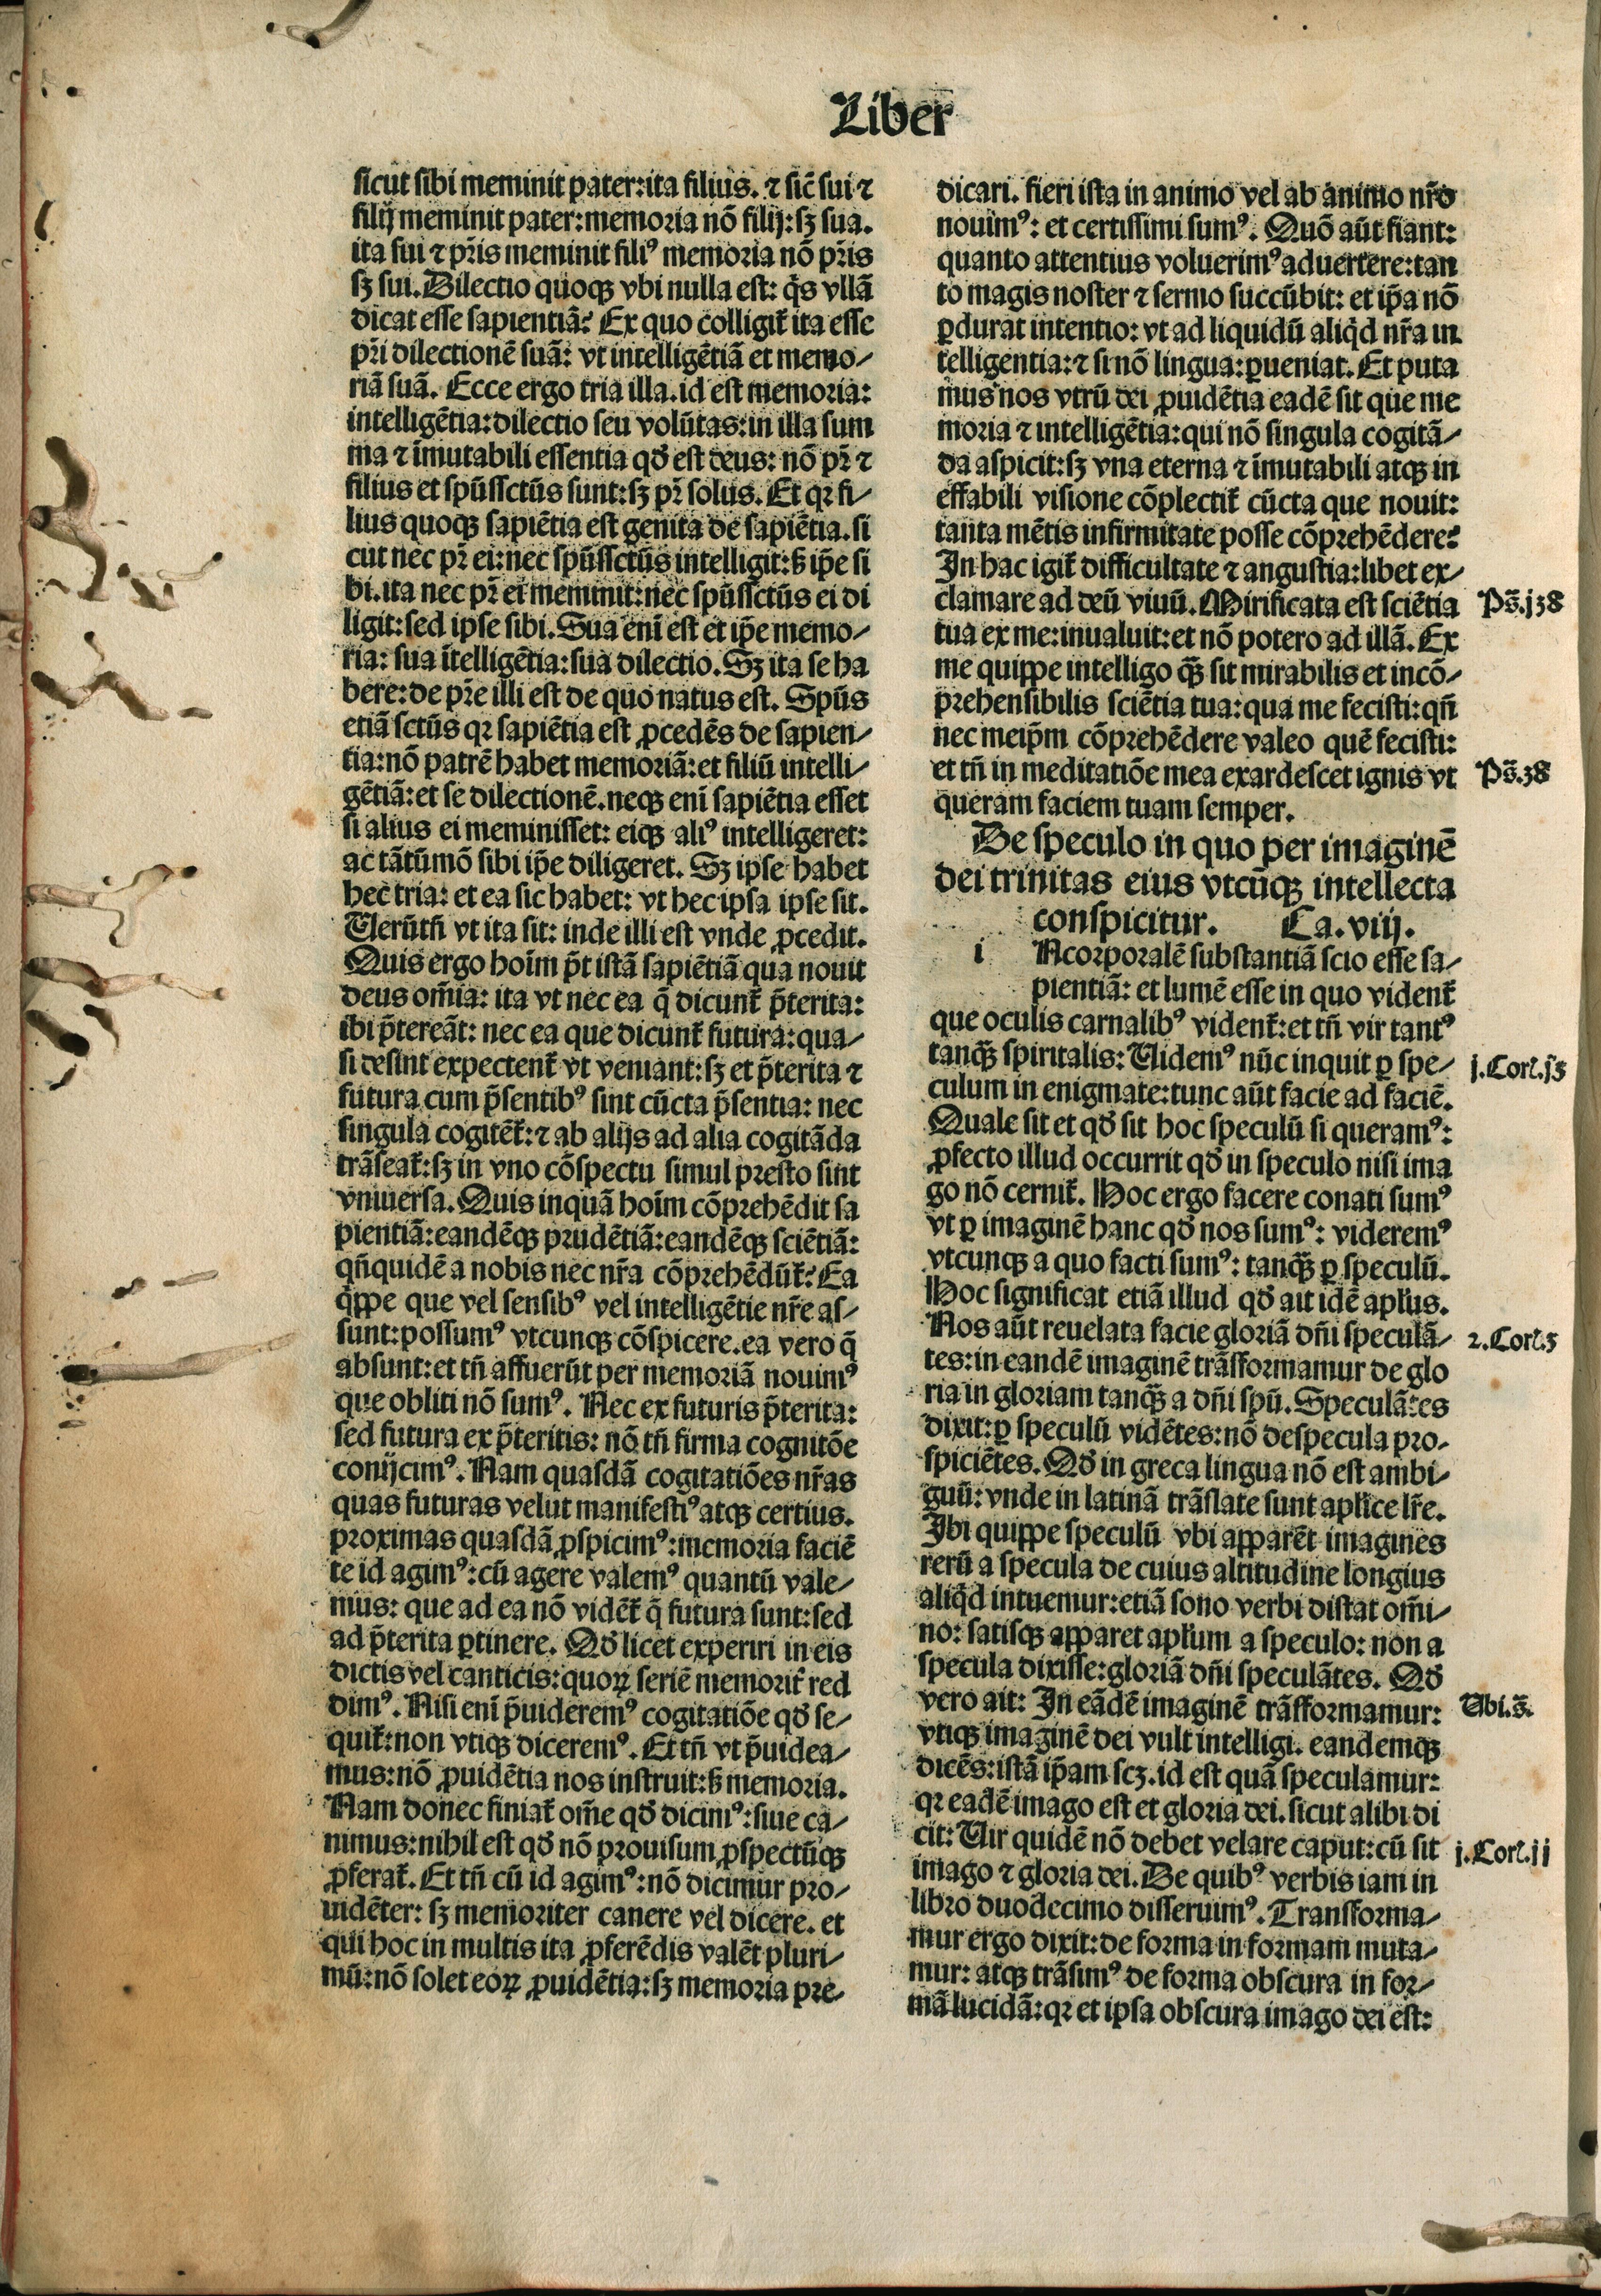 Liber
sicut sibi meminit pater:ita filius. ⁊ sic̃ sui ⁊
filij meminit pater:memoria nõ filij:sꝫ sua.
ita sui ⁊ pr̃is meminit filiꝰ memoria nõ pr̃is
sꝫ sui. Dilectio quoqꝫ vbi nulla est: q̃s vllã
dicat esse sapientiã? Ex quo colligit̃ ita esse
pr̃i dilectionẽ suã: vt intelligẽtiã et memo⸗
riã suã. Ecce ergo tria illa. id est memoria:
intelligẽtia:dilectio seu volũtas:in illa sum
ma ⁊ ĩmutabili essentia qď est deus: nõ pr̃ ⁊
filius et spũssctũs sunt:sꝫ pr̃ solus. Et qꝛ fi⸗
lius quoqꝫ sapiẽtia est genita de sapiẽtia. si
cut nec pr̃ ei:nec spũssctũs intelligit:ß ip̃e si
bi. ita nec pr̃ ei meminit:nec spũssctũs ei di
ligit:sed ipse sibi. Sua enĩ est et ip̃e memo⸗
ria: sua ĩtelligẽtia:sua dilectio. Sꝫ ita se ha
bere:de pr̃e illi est de quo natus est. Spũs
etiã sctũs qꝛ sapiẽtia est ꝓcedẽs de sapien⸗
tia:nõ patrẽ habet memoriã:et filiũ intelli⸗
gẽtiã:et se dilectionẽ.neqꝫ enĩ sapiẽtia esset
si alius ei meminisset: eiqꝫ aliꝰ intelligeret:
ac tãtũmõ sibi ip̃e diligeret. Sꝫ ipse habet
hec tria: et ea sic habet: vt hec ipsa ipse sit.
Uerũtñ vt ita sit: inde illi est vnde ꝓcedit.
Quis ergo hoĩm p̃t istã sapiẽtiã qua nouit
deus om̃ia: ita vt nec ea q̃ dicunt̃ p̃terita:
ibi p̃tereãt: nec ea que dicunt̃ futura:qua⸗
si desint expectent̃ vt veniant:sꝫ et p̃terita ⁊
futura cum p̃sentibꝰ sint cũcta p̃sentia: nec
singula cogitẽt̃:⁊ ab alijs ad alia cogitãda
trãseat̃:sꝫ in vno cõspectu simul presto sint
vniuersa. Quis inquã hoĩm cõprehẽdit sa
pientiã:eandẽqꝫ prudẽtiã:eandẽqꝫ sciẽtiã:
qñquidẽ a nobis nec nr̃a cõprehẽdũt̃? Ea
q̃ppe que vel sensibꝰ vel intelligẽtie nr̃e as⸗
sunt:possumꝰ vtcunqꝫ cõspicere.ea vero q̃
absunt:et tñ affuerũt per memoriã nouimꝰ
que obliti nõ sumꝰ. Nec ex futuris p̃terita:
sed futura ex p̃teritis: nõ tñ firma cognitõe
conijcimꝰ. Nam quasdã cogitatiões nr̃as
quas futuras velut manifestiꝰ atqꝫ certius.
proximas quasdã ꝓspicimꝰ:memoria faciẽ
te id agimꝰ:cũ agere valemꝰ quantũ vale⸗
mus: que ad ea nõ vidẽt̃ q̃ futura sunt:sed
ad p̃terita ꝑtinere. Qď licet experiri in eis
dictis vel canticis:quoꝝ seriẽ memorit̃ red
dimꝰ. Nisi enĩ p̃uideremꝰ cogitatiõe qď se⸗
quit̃:non vtiqꝫ diceremꝰ. Et tñ vt p̃uidea⸗
mus:nõ ꝓuidẽtia nos instruit:ß memoria.
Nam donec finiat̃ om̃e qď dicimꝰ:siue ca⸗
nimus:nihil est qď nõ prouisum ꝓspectũqꝫ
ꝓferat̃. Et tñ cũ id agimꝰ:nõ dicimur pro⸗
uidẽter: sꝫ memoriter canere vel dicere. et
qui hoc in multis ita ꝓferẽdis valẽt pluri⸗
mũ:nõ solet eoꝝ ꝓuidẽtia:sꝫ memoria pre⸗
dicari. fieri ista in animo vel ab animo nr̃o
nouimꝰ: et certissimi sumꝰ. Quõ aũt fiant:
quanto attentius voluerimꝰ aduertere:tan
to magis noster ⁊ sermo succũbit: et ip̃a nõ
ꝑdurat intentio: vt ad liquidũ aliq̃d nr̃a in
telligentia:⁊ si nõ lingua:ꝑueniat. Et puta
mus nos vtrũ dei ꝓuidẽtia eadẽ sit que me
moria ⁊ intelligẽtia:qui nõ singula cogitã⸗
da aspicit:sꝫ vna eterna ⁊ ĩmutabili atqꝫ in
effabili visione cõplectit̃ cũcta que nouit:
tanta mẽtis infirmitate posse cõprehẽdere?
In hac igit̃ difficultate ⁊ angustia:libet ex⸗
clamare ad deũ viuũ. Mirificata est sciẽtia
Ps̃.j38
tua ex me:inualuit:et nõ potero ad illã. Ex
me quippe intelligo qꝫ̃ sit mirabilis et incõ⸗
prehensibilis sciẽtia tua:qua me fecisti:qñ
nec meip̃m cõprehẽdere valeo quẽ fecisti:
et tñ in meditatiõe mea exardescet ignis vt
Ps̃.38
queram faciem tuam semper.
De speculo in quo per imaginẽ
dei trinitas eius vtcũqꝫ intellecta
conspicitur. Ca. viij.
i Ncorporalẽ substantiã scio esse sa⸗
pientiã: et lumẽ esse in quo vident̃
que oculis carnalibꝰ vident̃:et tñ vir tantꝰ
tanqꝫ̃ spiritalis: Uidemꝰ nũc inquit ꝑ spe⸗
j.Corĩ.j3
culum in enigmate:tunc aũt facie ad faciẽ.
Quale sit et qď sit hoc speculũ si queramꝰ:
ꝓfecto illud occurrit qď in speculo nisi ima
go nõ cernit̃. Hoc ergo facere conati sumꝰ
vt ꝑ imaginẽ hanc qď nos sumꝰ: videremꝰ
vtcunqꝫ a quo facti sumꝰ: tanqꝫ̃ ꝑ speculũ.
Hoc significat etiã illud qď ait idẽ apl̃us.
Nos aũt reuelata facie gloriã dñi speculã⸗
2.Corĩ.3
tes:in eandẽ imaginẽ trãsformamur de glo
ria in gloriam tanqꝫ̃ a dñi spũ. Speculãtes
dixit:ꝑ speculũ vidẽtes:nõ despecula pro⸗
spiciẽtes. Qď in greca lingua nõ est ambi⸗
guũ:vnde in latinã trãslate sunt apl̃ice lr̃e.
Ibi quippe speculũ vbi apparẽt imagines
rerũ a specula de cuius altitudine longius
aliq̃d intuemur:etiã sono verbi distat om̃i⸗
no: satisqꝫ apparet apl̃um a speculo: non a
specula dixisse:gloriã dñi speculãtes. Qď
vero ait: In eãdẽ imaginẽ trãsformamur:
Ubi.s̃.
vtiqꝫ imaginẽ dei vult intelligi. eandemqꝫ
dicẽs:istã ip̃am scꝫ.id est quã speculamur:
qꝛ eadẽ imago est et gloria dei.sicut alibi di
cit: Uir quidẽ nõ debet velare caput:cũ sit
j.Corĩ.jj
imago ⁊ gloria dei. De quibꝰ verbis iam in
libro duodecimo disseruimꝰ. Transforma⸗
mur ergo dixit:de forma in formam muta⸗
mur: atqꝫ trãsimꝰ de forma obscura in for⸗
mã lucidã:qꝛ et ipsa obscura imago dei est: